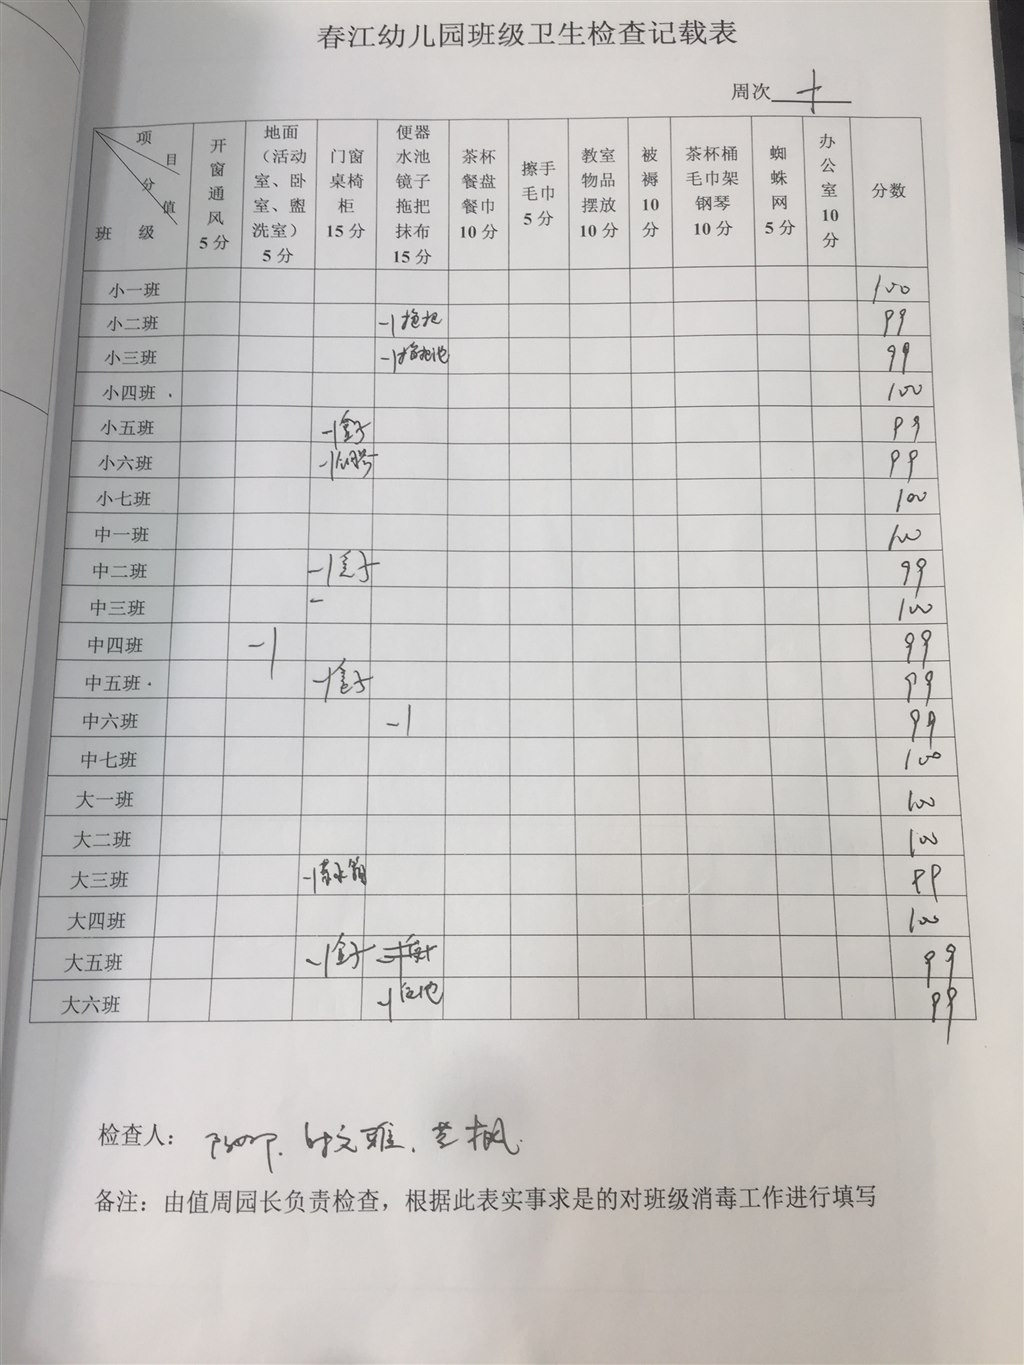 春江幼儿园班级卫生检查记载表
周次 十
项目 分值 班级 开窗通风5分 地面（活动室、卧室、盥洗室）5分 门窗桌椅柜15分 便器水池镜子拖把抹布15分 茶杯餐盘餐巾10分 擦手毛巾5分 教室物品摆放10分 被褥10分 茶杯桶毛巾架钢琴10分 蜘蛛网5分 办公室10分 分数
小一班 100
小二班 -1拖把 99
小三班 -1拖把池 99
小四班 100
小五班 -1盒子 99
小六班 -1 99
小七班 100
中一班 100
中二班 -1盒子 99
中三班 - 100
中四班 -1 99
中五班 -1盒子 99
中六班 -1 99
中七班 100
大一班 100
大二班 100
大三班 -1 99
大四班 100
大五班 -1盒子 99
大六班 -1 99
检查人：
备注：由值周园长负责检查，根据此表实事求是的对班级消毒工作进行填写